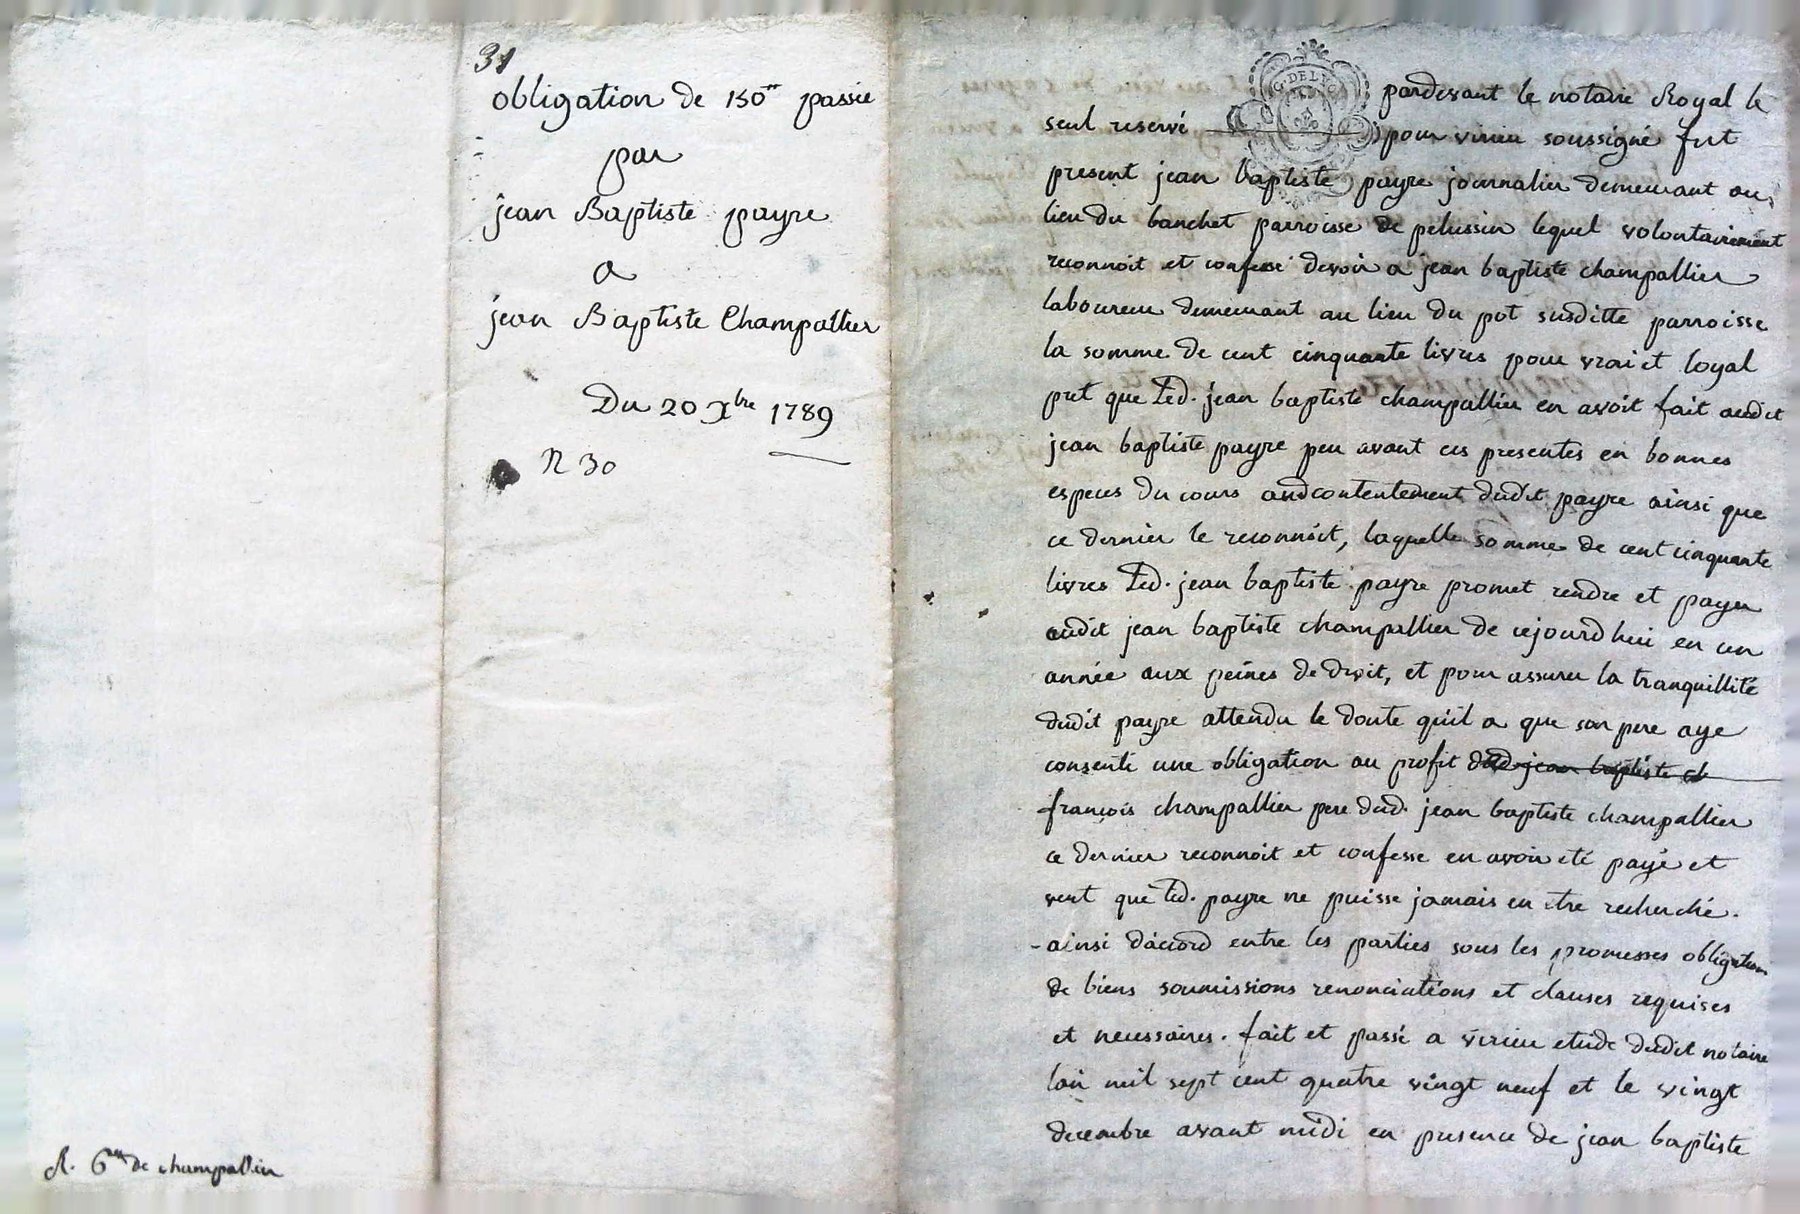 31
obligation de 150tt passée
par
jean Baptiste payre
a
jean Baptiste Champallier
Du 20 Xbre 1789
N 30
R. 6tt de champallier
G. DE LYON
pardevant le notaire Royal le
seul reservé pour virieu soussigné fut
present jean baptiste payre journalier demeurant au
lieu du banchet parroisse de pelussin lequel volontairement
reconnoit et confesse devoir a jean baptiste champallier
laboureur demeurant au lieu du pot susditte parroisse
la somme de cent cinquante livres pour vrai et loyal
pret que led. jean baptiste champallier en avoit fait audit
jean baptiste payre peu avant ces presentes en bonnes
especes du cours au contentement dudit payre ainsi que
ce dernier le reconnoit, laquelle somme de cent cinquante
livres led. jean baptiste payre promet rendre et payer
audit jean baptiste champallier de cejourdhui en un
année aux peines de droit, et pour assurer la tranquillité
dudit payre attendu le doute qu'il a que son pere aye
consenti une obligation au profit dud. jean baptiste ch
françois champallier pere dud. jean baptiste champallier
ce dernier reconnoit et confesse en avoir été payé et
veut que led. payre ne puisse jamais en etre recherché.
-ainsi d'accord entre les parties sous les promesses obligation
de biens soumissions renonciations et clauses requises
et necessaires. fait et passé a virieu etude dudit notaire
lan mil sept cent quatre vingt neuf et le vingt
decembre avant midi en presence de jean baptiste